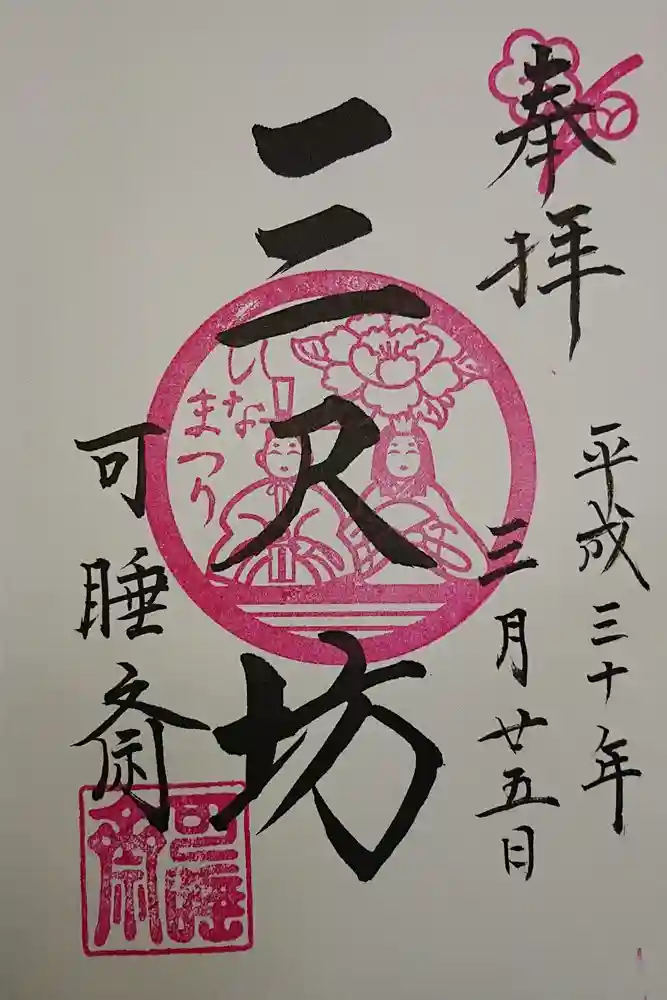 奉拝
平成三十年
三月廿五日
三尺坊
ひな
まつり
可睡斎
可睡斎